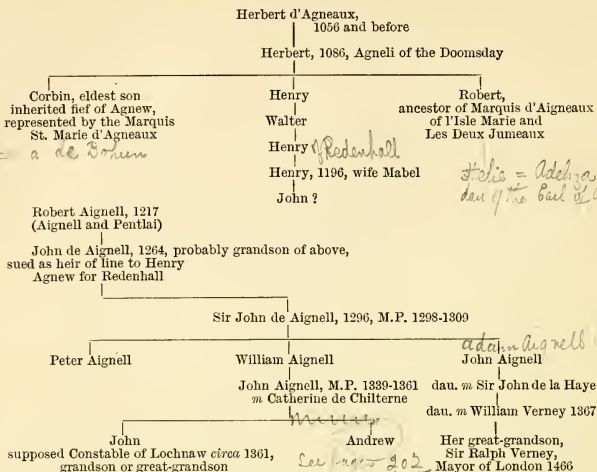 Herbert d'Agneaux,
1056 and before
Herbert, 1086, Agneli of the Doomsday
Corbin, eldest son
inherited fief of Agnew,
represented by the Marquis
St. Marie d'Agneaux
= a de Bohun
Henry
Walter
Henry of Redenhall
Henry, 1196, wife Mabel
John ?
Robert,
ancestor of Marquis d'Aigneaux
of l'Isle Marie and
Les Deux Jumeaux
= Adeliza
dau of the Earl of
Robert Aignell, 1217
(Aignell and Pentlai)
John de Aignell, 1264, probably grandson of above,
sued as heir of line to Henry
Agnew for Redenhall
Sir John de Aignell, 1296, M.P. 1298-1309
Peter Aignell
William Aignell
John Aignell, M.P. 1339-1361
m Catherine de Chilterne
adam Aignell
John Aignell
dau. m Sir John de la Haye
dau. m William Verney 1367
Her great-grandson,
Sir Ralph Verney,
Mayor of London 1466
John
supposed Constable of Lochnaw circa 1361,
grandson or great-grandson
Andrew
See page 202